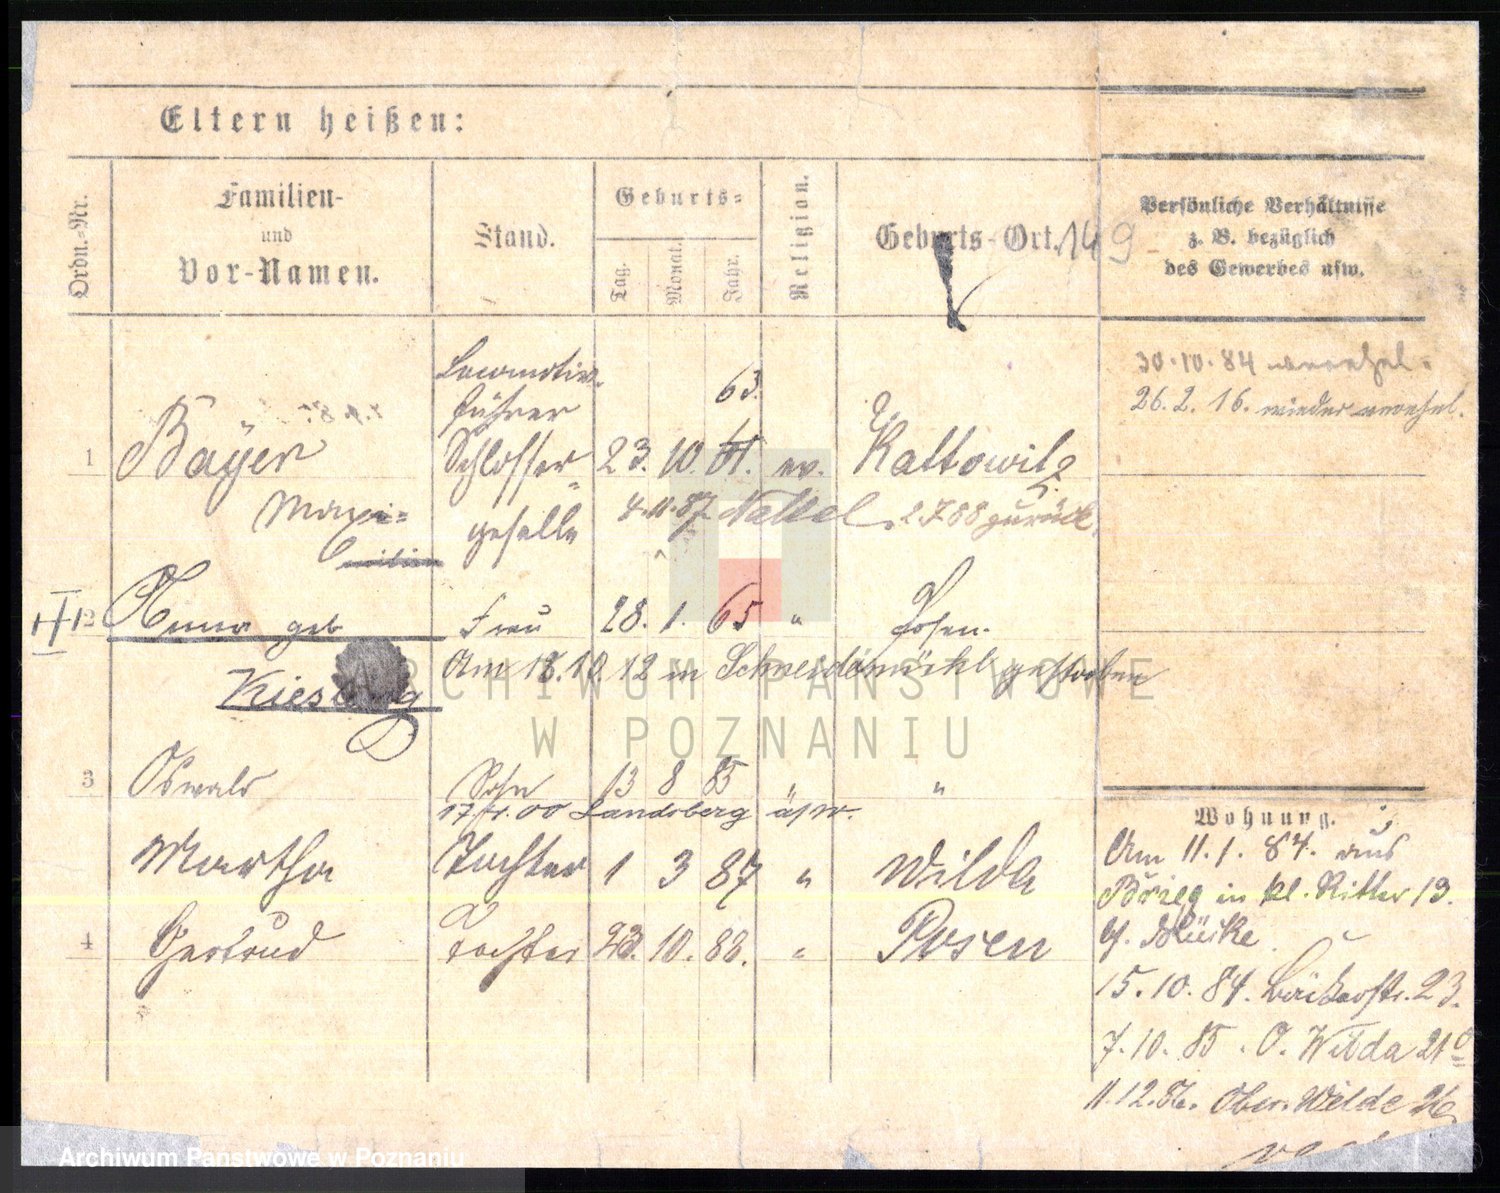 Eltern heißen:
Ordn.-Nr.
Familien-
und
Vor-Namen.
Stand.
Geburts-
Tag.
Monat.
Jahr.
Religion.
Geburts-Ort.
149
Persönliche Verhältnisse
z. B. bezüglich
des Gewerbes usw.
30.10.84 verehel.
26.2.16. wieder verehel.
Locomotiv-
führer
63.
1 Bayer Schlosser- 23. 10. 61. ev. Kattowitz
Maxi- geselle 4.11.87. Nakkel. 2.7.88 zurück.
milian
2 Anna geb Frau 28. 1. 65 " Posen.
Kiesling
Am 18.10.12 in Schneidemühl gestorben
3 Oswald Sohn 13 8 85 " "
17/1.00 Landsberg a/W.
Martha Tochter 1 3 87 " Wilda
4 Gertrud Tochter 23. 10. 88. " Posen
Wohnung.
Am 11.1.84. aus
Brieg in kl. Ritter 13.
15.10.84. Bäckerstr. 23.
7.10.85. O. Wilda 21
11.12.86. Ober-Wilda 26
ARCHIWUM PAŃSTWOWE
W POZNANIU
Archiwum Państwowe w Poznaniu